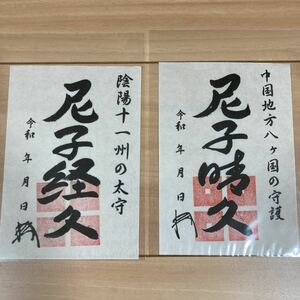 陰陽十一州の太守
尼子経久
令和 年 月 日
中国地方八ヶ国の守護
尼子晴久
令和 年 月 日